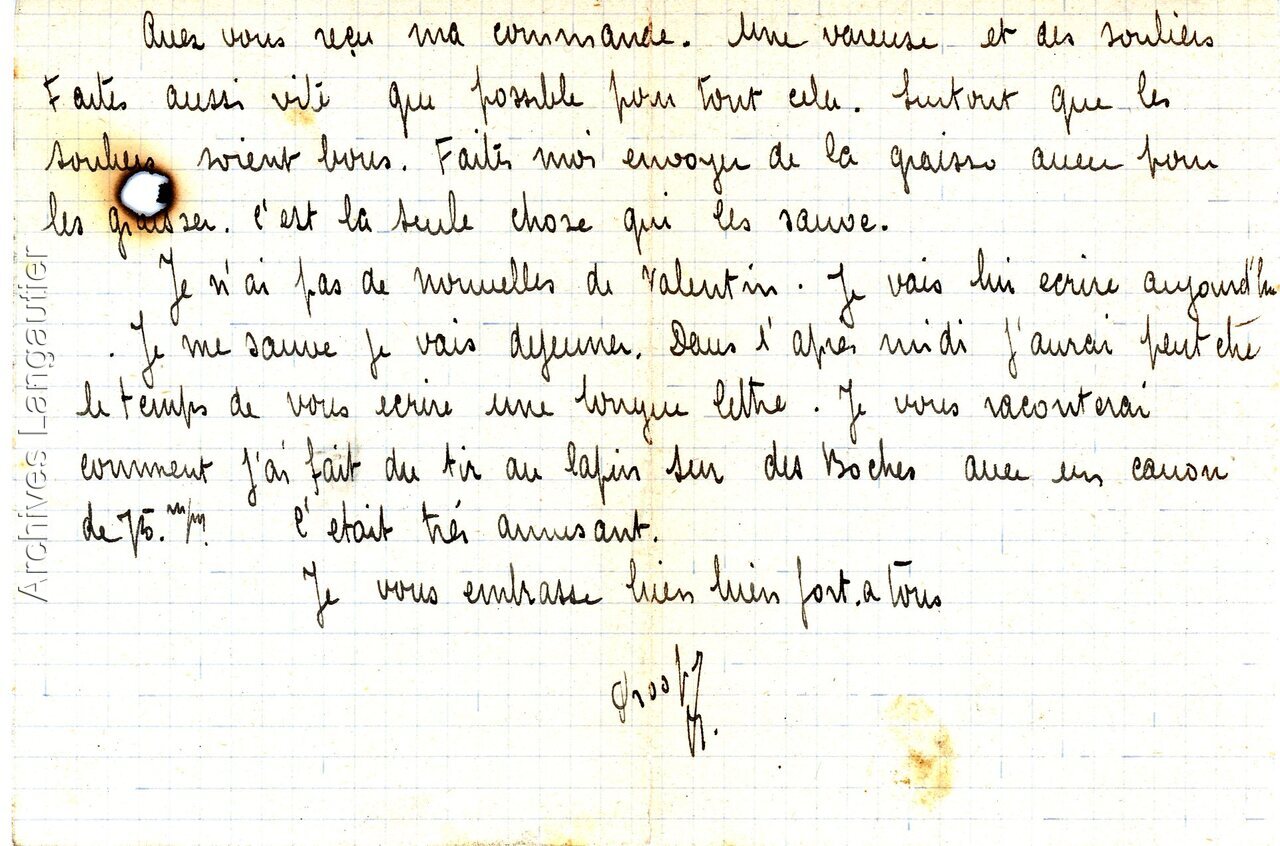 Avez vous reçu ma commande. Une vareuse et des souliers
Faites aussi vite que possible pour tout cela. Surtout que les
souliers soient bons. Faites moi envoyer de la graisse avec pour
les graisser. C'est la seule chose qui les sauve.
Je n'ai pas de nouvelles de Valentin. Je vais lui ecrire aujourd'hui
. Je me sauve je vais dejeuner. Dans l'apres midi j'aurai peut etre
le temps de vous ecrire une longue lettre. Je vous raconterai
comment j'ai fait du tir au lapin sur des Boches avec un canon
de 75. m/m. C'etait trés amusant.
Je vous embrasse bien bien fort. a tous
Archives Langautier